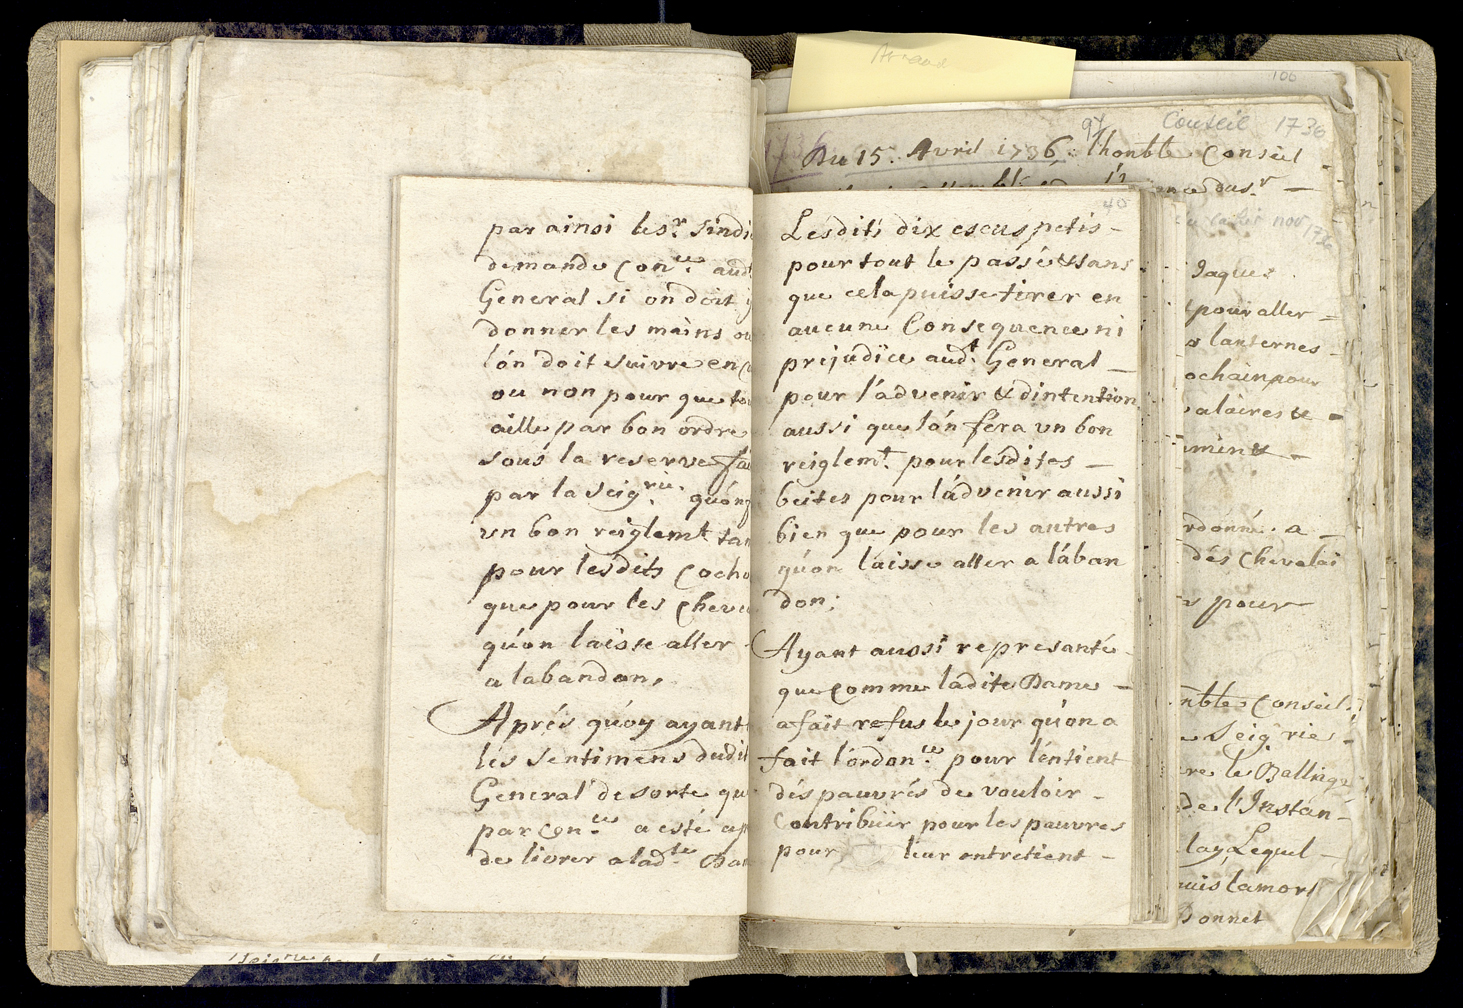 par ainsi les.rs Sindi
demande Con.ce aud
General si on doit y
donner les mains ou
l'on doit suivre en
ou non pour que tou
aille par bon ordre
sous la reserve fai
par la Seig.rie. qu'on
un bon reiglemt. tan
pour lesdits Cocho
que pour les cheva
qu'on laisse aller
a labandon,
Aprés quoy ayant
les Sentimens dudit
General de sorte qu
par con.ce a esté ap
de livrer a lad.te Dam
40
Lesdits dix escus petis -
pour tout le passé & sans
que cela puisse tirer en
aucune Consequence ni
prejudice aud.t General -
pour l'advenir & d'intention
aussi que l'ón féra un bon
reiglem.t pour lesdites -
beites pour l'ádvenir aussi
bien que pour les autres
qu'on laisse aller a l'ában
don;
Ayant aussi representé -
que comme ladite Dame -
a fait refus le jour qu'on a
fait l'ordon.ce pour l'éntient
dés pauvrés de vouloir -
Contribuïr pour les pauvres
pour leur entretient -
106
97 Conseil 1736
1736
Du 15. Avril 1736. lhonble Conseil
nov 1736
Jaques
pour aller -
lanternes -
ochain pour
alaires & -
iment -
rdonné. a -
dés Chevalai
pour
nble Conseil.
Seig rie -
re le Ballinge
de l'Instan-
lay Lequel -
uis lamort
Donnet